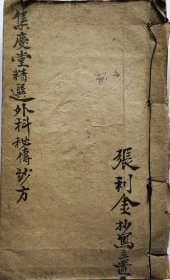 張利金抄寫
集慶堂精選外科祕傳妙方